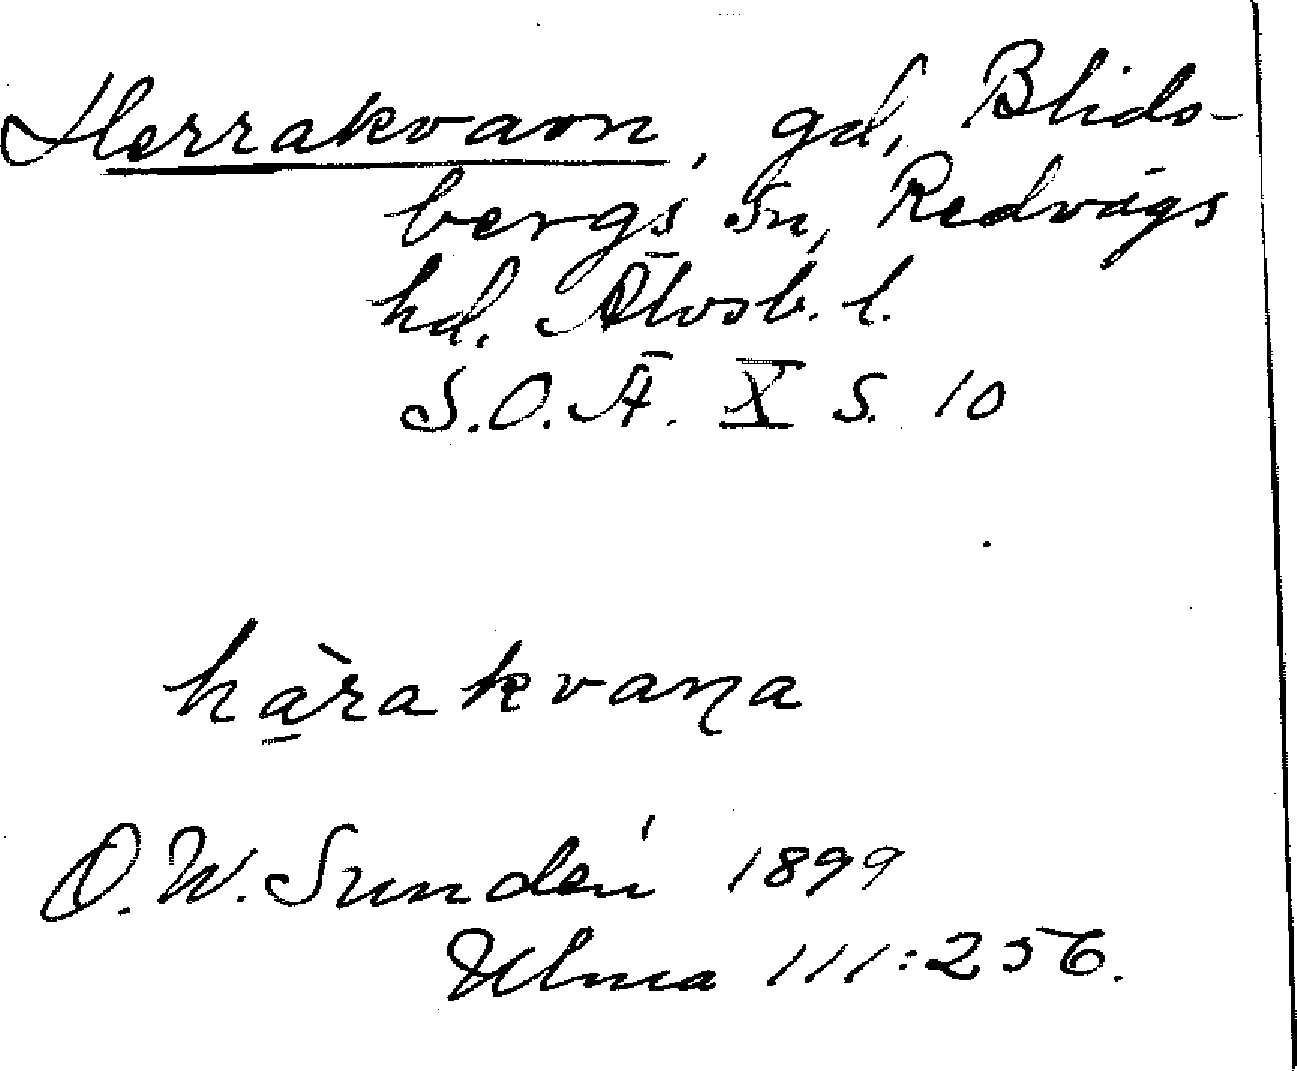 Herrakvarn, gd, Blids-
bergs sn, Redvägs
hd. Älvsb. l.
S.O.Ä. X S. 10
hàrakvaɳa
D.W. Sundén 1899
Ulma 111:256.